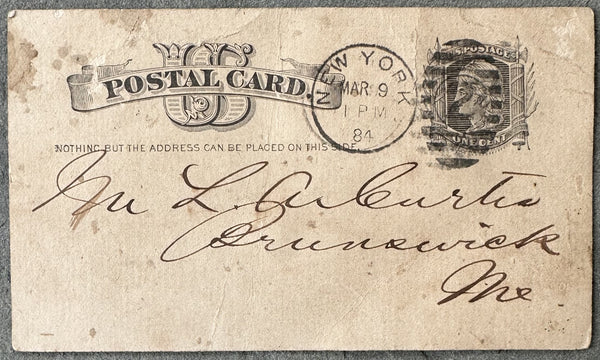 US
POSTAL CARD.
NEW YORK
MAR 9
1 PM
84
U.S. POSTAGE
ONE CENT
NOTHING BUT THE ADDRESS CAN BE PLACED ON THIS SIDE
Mr L. A. Curtis
Brunswick
Me